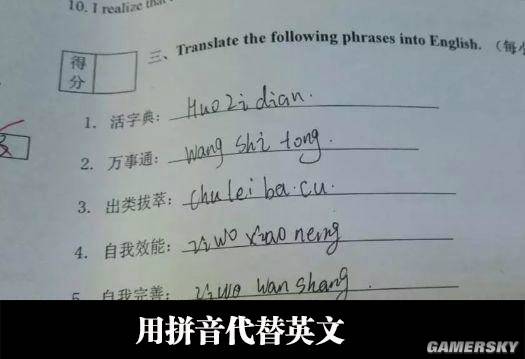 10. I realize that
三、Translate the following phrases into English.（每
得分
1. 活字典: Huo Zi dian.
2. 万事通: Wang shi tong.
3. 出类拔萃: Chu lei ba. cu.
4. 自我效能: Zi wo xiao neng
5. 自我完善: Zi wo wan shang.
用拼音代替英文
GAMERSKY